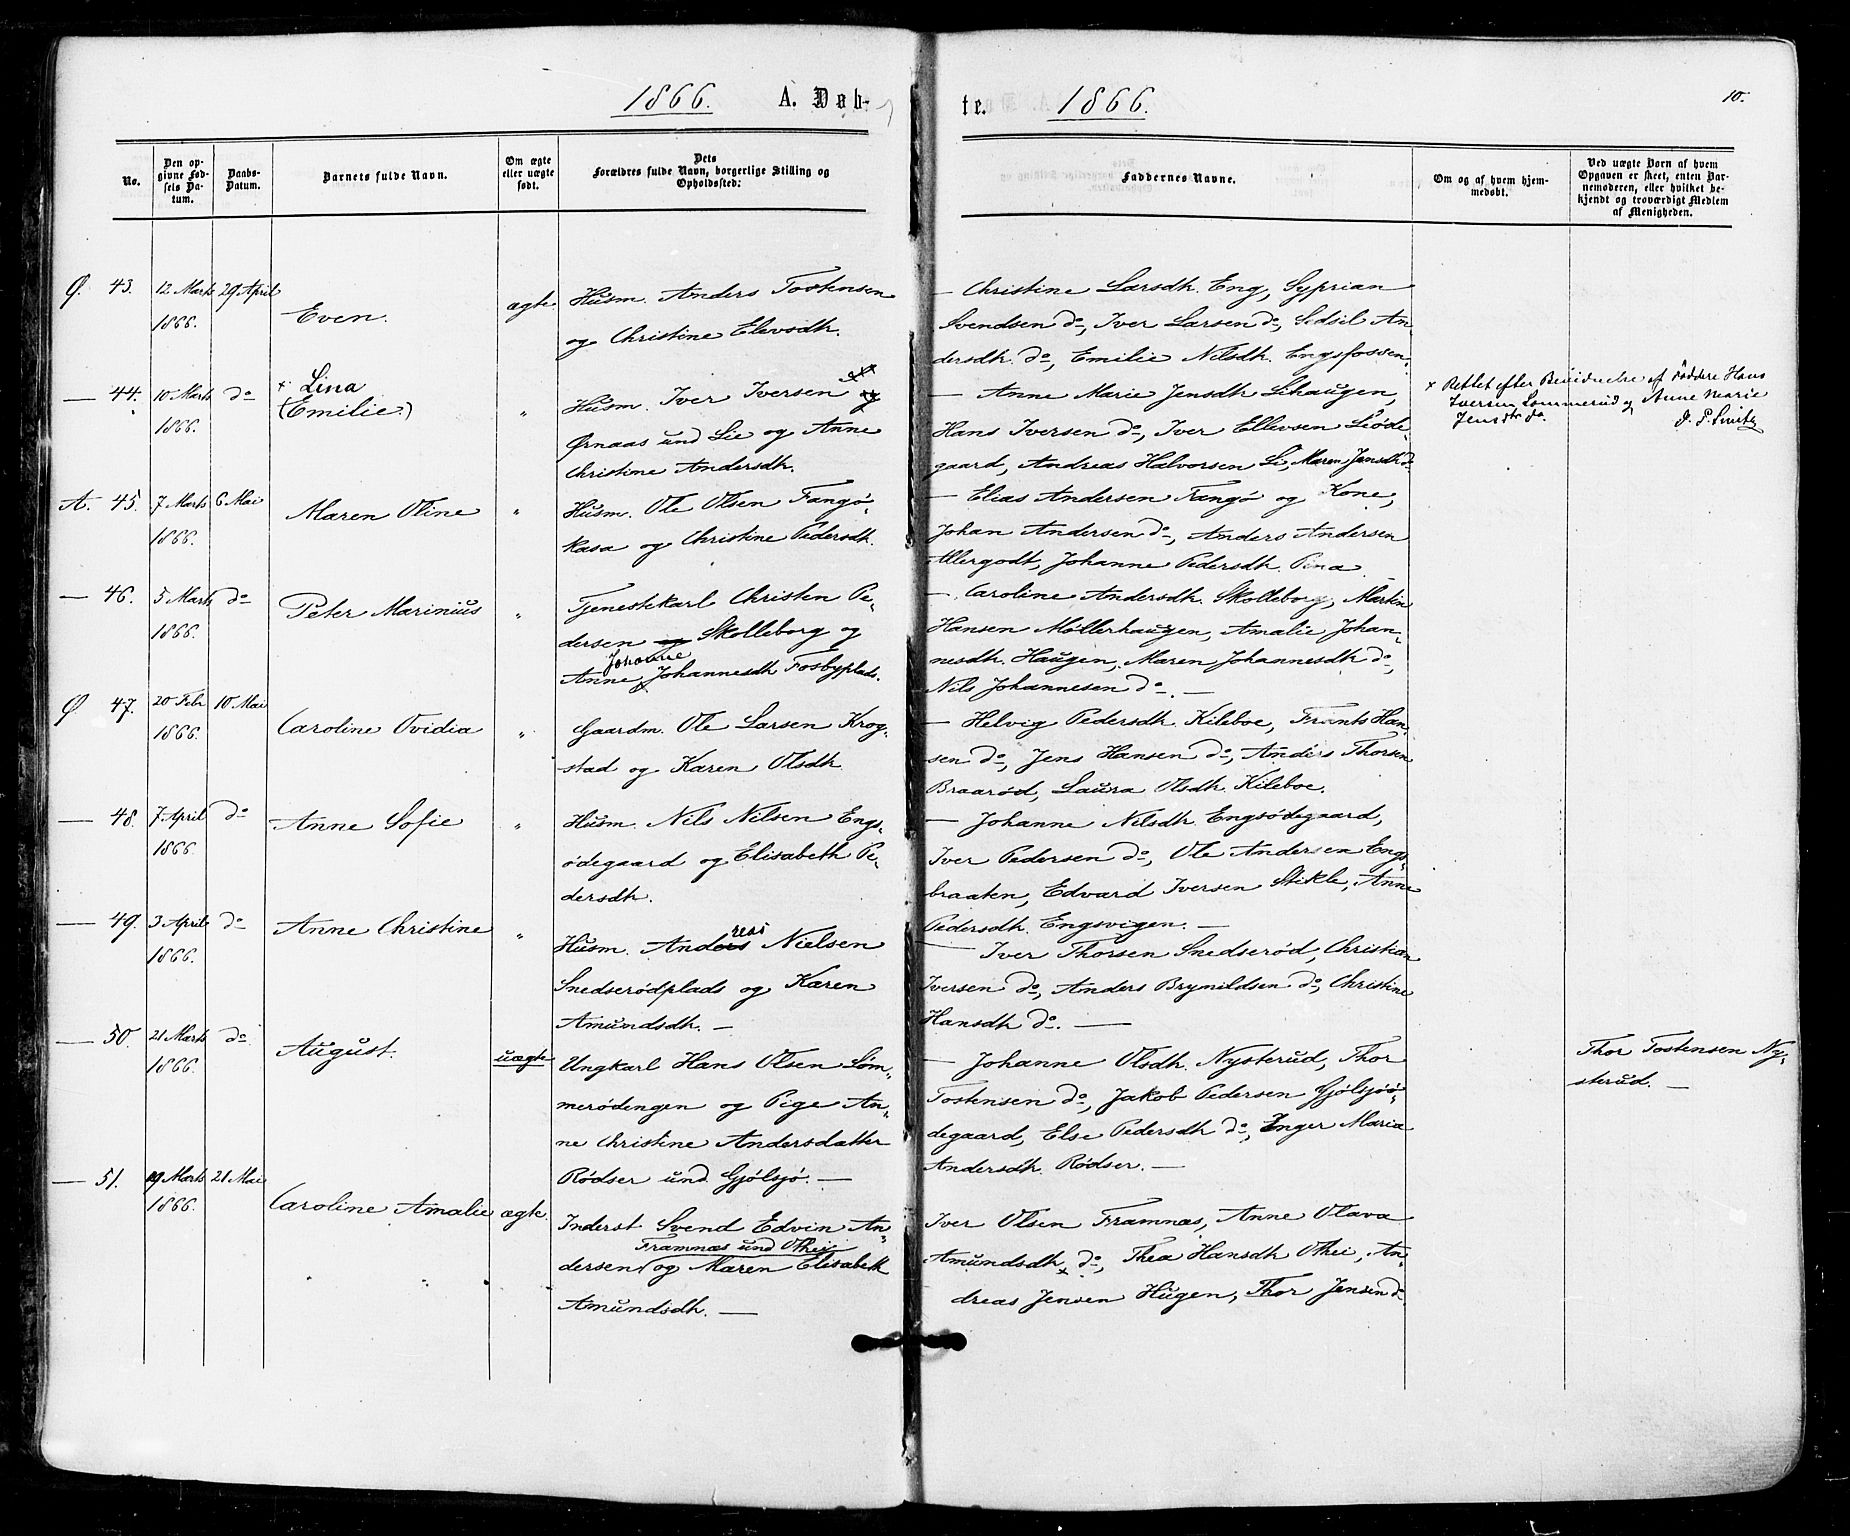 1866. A. Døb-
te. 1866. 10.
No.
Den op-
givne Fød-
sels Da-
tum.
Daabs-
Datum.
Barnets fulde Navn.
Om ægte
eller uægte
født.
Dets
Forældres fulde Navn, borgerlige Stilling og
Opholdssted:
Faddernes Navne.
Om og af hvem hjem-
medøbt.
Ved uægte Børn af hvem
Opgaven er skeet, enten Bar-
nemoderen, eller hvilket be-
kjendt og troværdigt Medlem
af Menigheden.
Ø. 43. 12 Marts 29 April
1866.
Even.
ægte
Husm. Anders Tostensen
og Christine Elevsdh.
— Christine Larsdh. Eng, Syprian
Svendsen do, Iver Larsen do, Sedsil An-
dersdh. do, Emilie Nilsdh. Engsfossen.
— 44. 10 Marts do
1866.
× Lina
(Emilie)
"
Husm. Iver Iversen og
Ørnaas und Lie og Anne
Christine Andersdh.
— Anne Marie Jensdh Lihaugen,
Hans Iversen do, Iver Ellevsen Liøde-
gaard, Andreas Halvorsen Li, Maren Jensdh do
× Rettet efter Bevidnelse af Faddere Hans
Iversen Sommerud og Anne Marie
Jensdtr do
A. 45. 7 Marts 6 Mai
1866.
Maren Oline
"
Husm. Ole Olsen Tangø-
kasa og Christine Pedersdh.
— Elias Andersen Tangø og Kone,
Johan Andersen do, Anders Andersen
Allergodt, Johanne Pedersdh. Pina —
— 46. 5 Marts do
1866.
Peter Marinius
"
Tjenestekarl Christen Pe-
dersen og Skolleborg og
Johanne
Anne Johannesdh Fosbyplads.
— Caroline Andersdh. Skolleborg, Martin
Hansen Møllerhaugen, Amalie Johan-
nesdh. Haugen, Maren Johannesdh do,
Nils Johannesen do. —
Ø 47. 20 Febr 10 Mai
1866.
Caroline Ovidia
"
Gaardm. Ole Larsen Krog-
stad og Karen Olsdh
— Helvig Pedersdh. Kileboe, Frants Han-
sen do, Jens Hansen do, Anders Thorsen
Braarød, Laura Olsdh. Kileboe.
— 48. 7 April do
1866.
Anne Sofie
"
Husm. Nils Nilsen Engs-
ødegaard og Elisabeth Pe-
dersdh.
— Johanne Nilsdh. Engsødegaard,
Iver Pedersen do, Ole Andersen Engs-
braaten, Edvard Iversen Stikle, Anne
Pedersdh. Engsvigen. —
— 49. 3 April do
1866.
Anne Christine
"
reas
Husm. Anders Nielsen
Snedserødplads og Karen
Amundsdh. —
— Iver Thorsen Snedserød, Christian
Iversen do, Anders Brynildsen do, Christine
Hansdh do. —
— 50. 21 Marts do
1866.
August.
uægte
Ungkarl Hans Olsen Søm-
merødengen og Pige An-
ne Christine Andersdatter
Rødser und Gjølsjø. —
— Johanne Olsdh. Nysterud, Thor
Tostensen do, Jakob Pedersen Gjølsjøø-
degaard, Else Pedersdh do, Inger Maria
Andersdh. Rødser. —
Thor Tostensen Ny-
sterud. —
— 51. 19 Marts 21 Mai
1866.
Caroline Amalie
ægte
Inderst Svend Edvin An-
Framnæs und Othei
dersen og Maren Elisabeth
Amundsdh. —
Iver Olsen Framnæs, Anne Olava
Amundsdh do, Thea Hansdh Othei, An-
dreas Jensen Hugen, Thor Jensen do